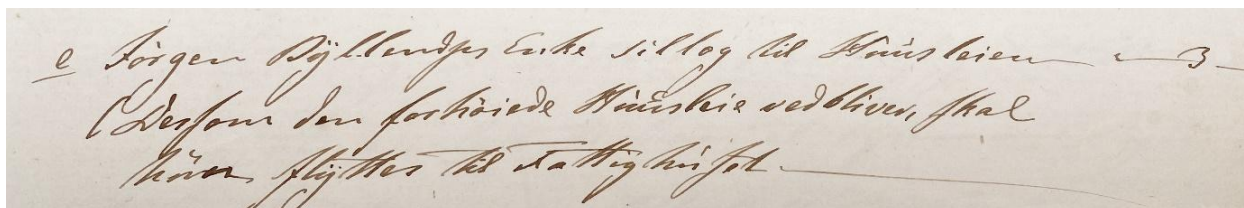 e Jörgen Dyllendys Enke tillæg til Huusleien " – 3 –
(Dersom den forhöiede Huusleie vedbliver, skal
hun flyttes til Fattighuset.